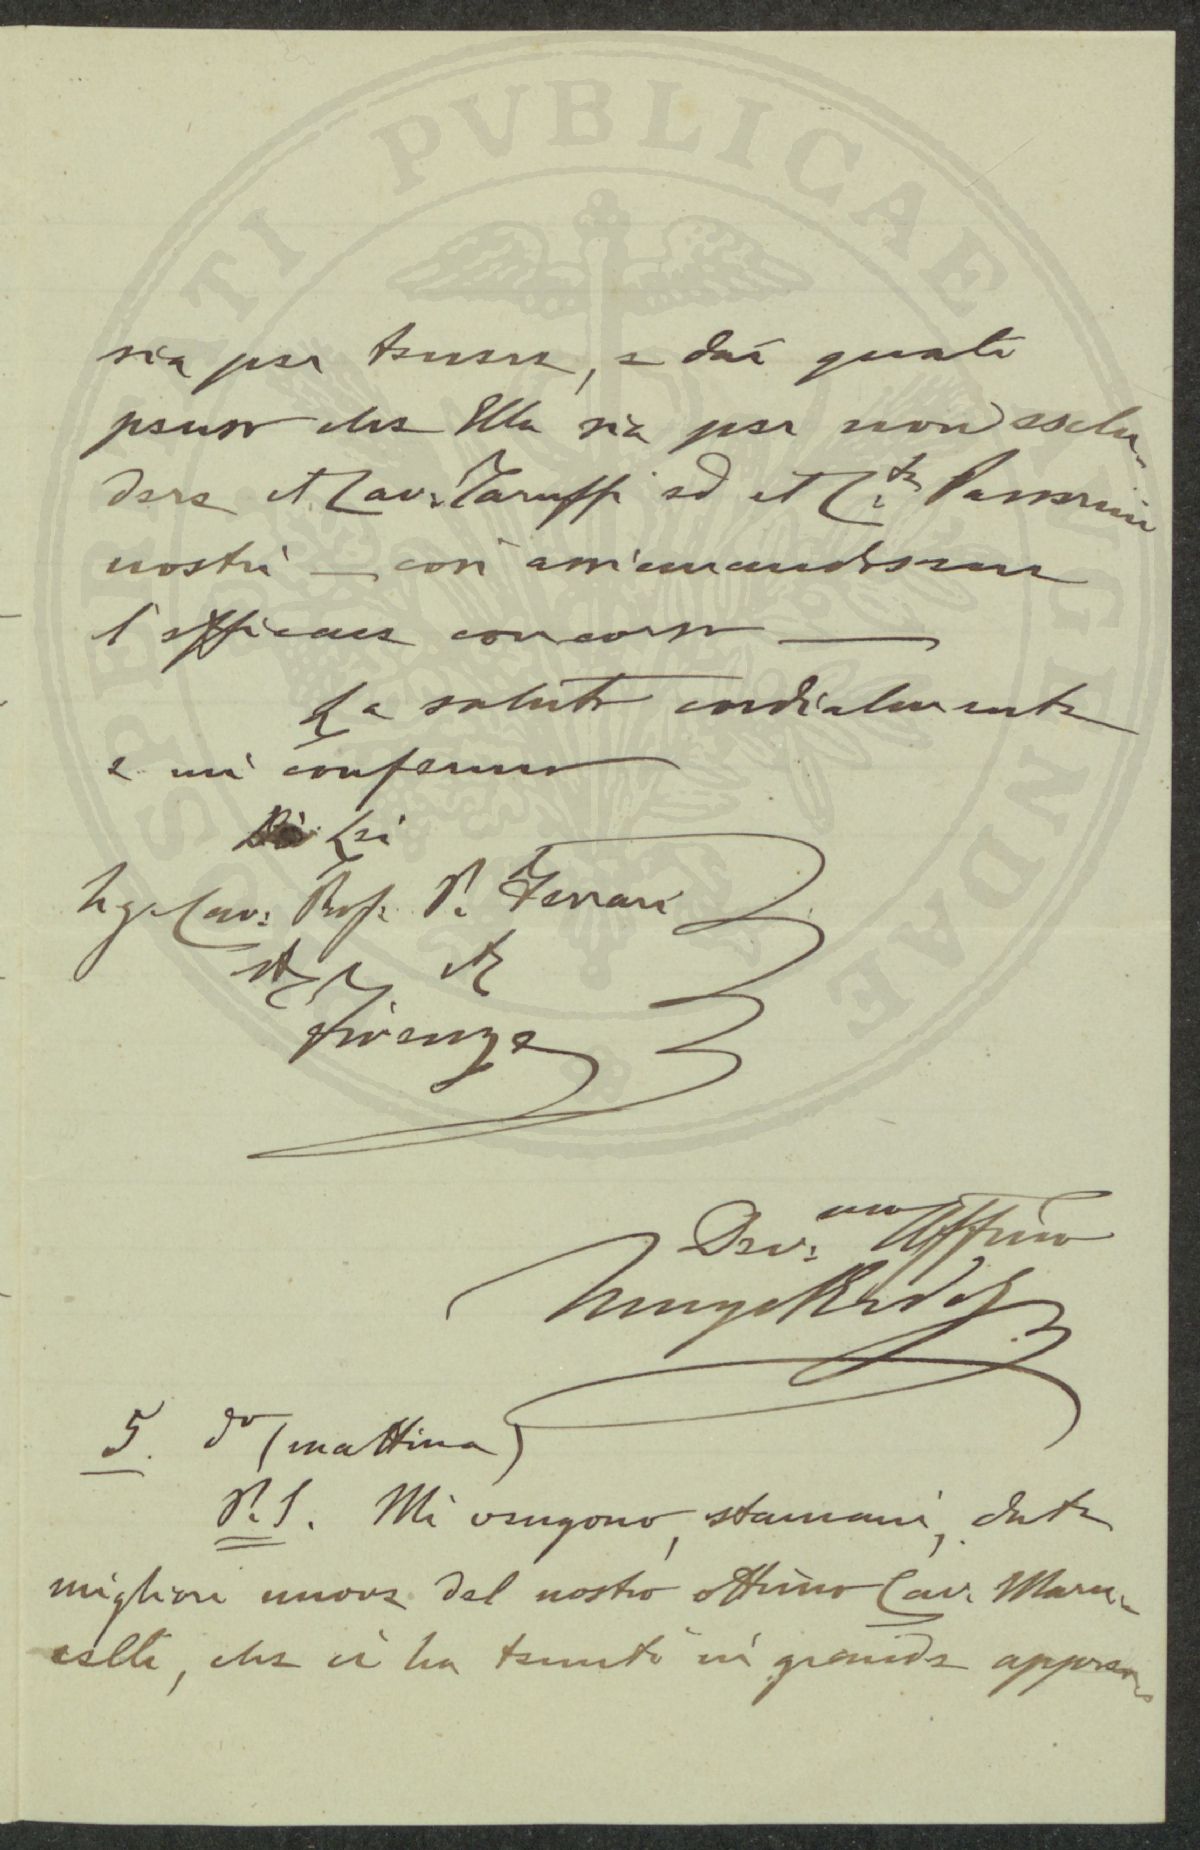 sia per tenere, e dai quali
penso che Ella sia per non esclu-
dere il Cav: Taruffi ed il C.te Passerini
nostri — così assicurandosene
l'efficace concorso —
La saluto cordialmente
e mi confermo
Di Lei
Sig. Cav: Prof. P. Ferrari
etc etc
Firenze
Dev:mo Affmo
5. do (mattina)
P.S. Mi vengono, stamani, date
migliori nuove del nostro ottimo Cav. Maru-
celli, che ci ha tenuti in grande appren-